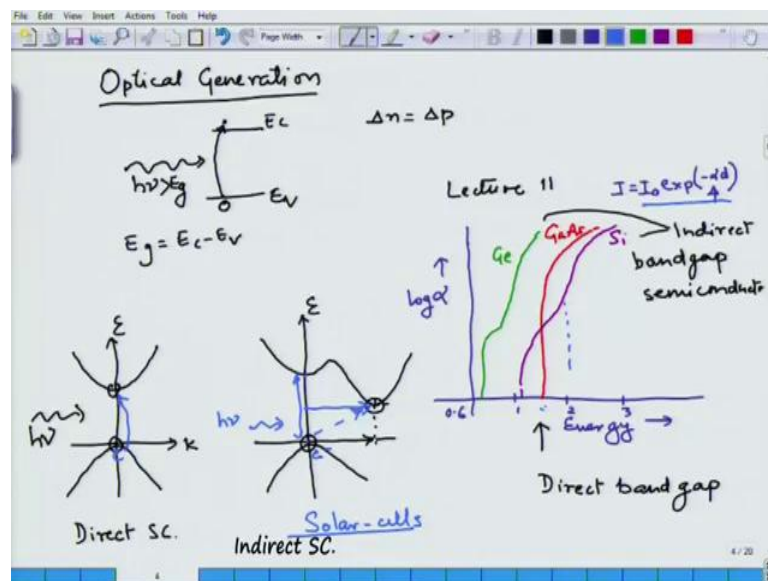 File Edit View Insert Actions Tools Help
Page Width
B I
Optical Generation
Ec
Δn = Δp
hν>Eg
Ev
Eg = Ec-Ev
Lecture 11
I=I₀exp(-αd)
Ge
GaAs
Si
Indirect
bandgap
semiconductor
logα
0.6 1 2 3
Energy
Direct bandgap
E
hν
k
Direct SC.
E
hν
Solar-cells
Indirect SC.
4 / 20
4